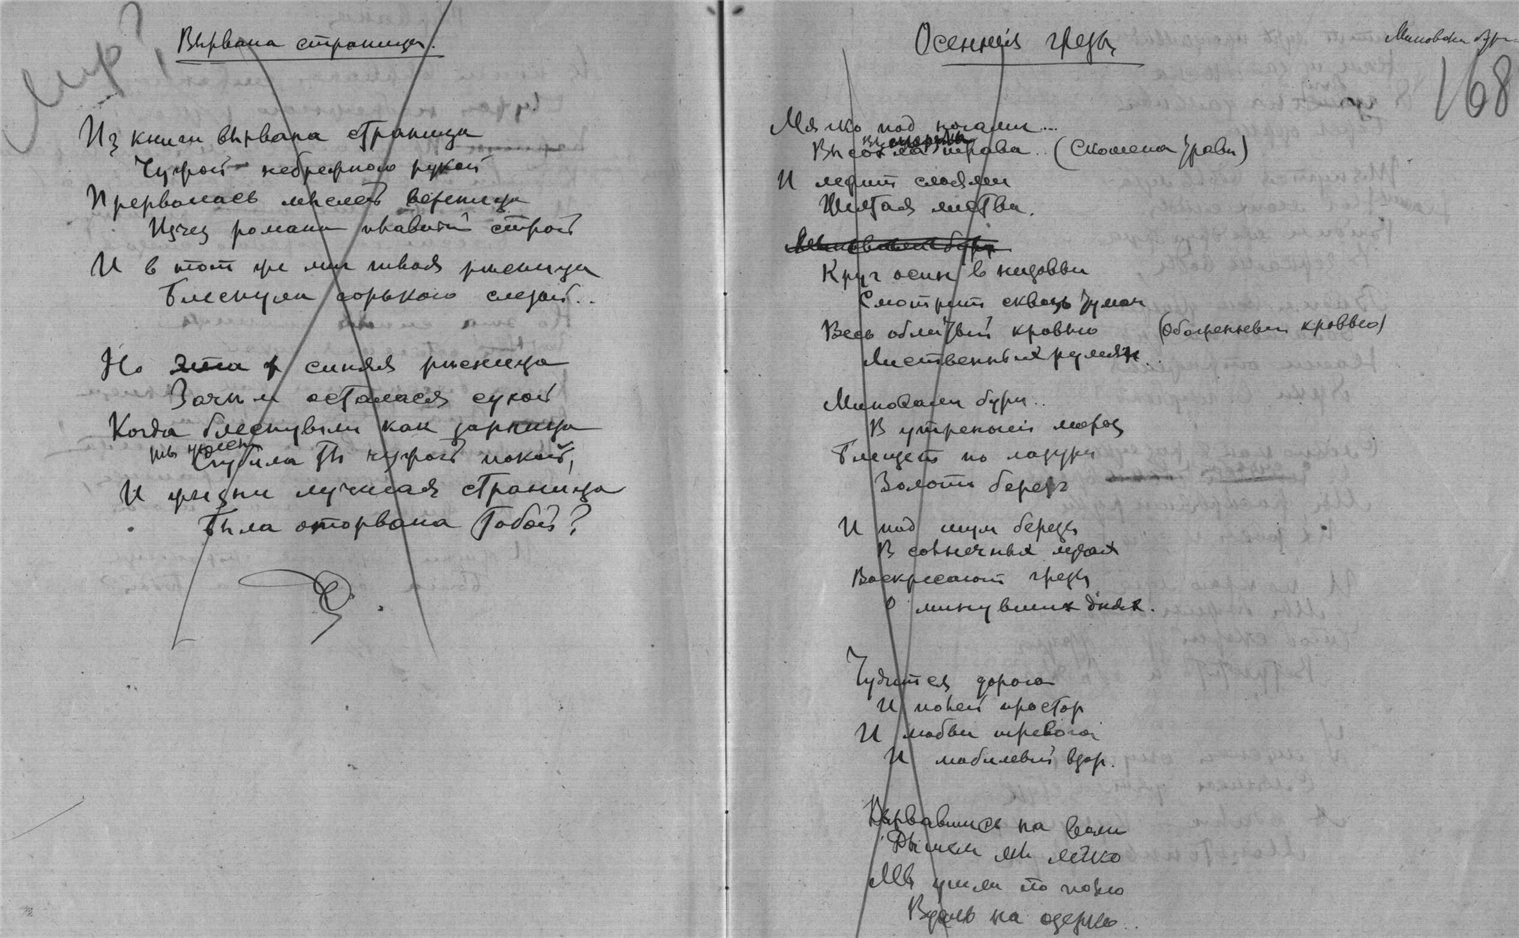 Вырвана страница.
Из книги вырвана страница
Чужой небрежною рукой
Прервалась мыслей вереница
Исчез романа правый строй
И в тот же миг твоя ресница
Блеснула горькою слезой..
Но эта синяя ресница
Зачем осталася сухой
Когда блеснувши как зарница
Сгубила ты чужой покой,
И жизни лучшая страница
Была оторвана Тобой?
Осенния грезы
168
Мягко под ногами...
Высохла трава.. (Скошена трава)
И лежит слоями
Желтая листва.
Миновали бури
Круг осин в низовьи
Смотрит сквозь туман
Весь облитый кровью (Обагренный кровью)
Лиственных румян..
Миновали бури..
В утренний мороз
Блещет по лазури
Золото берез
И под шум березы
В солнечных лучах
Воскресают грезы
О минувших днях.
Чудится дорога
И полей простор
И любви тревога
И милый вздор.
Вырвавшись на волю
Дышем мы легко
Мы ушли по полю
Вдоль на озерко..